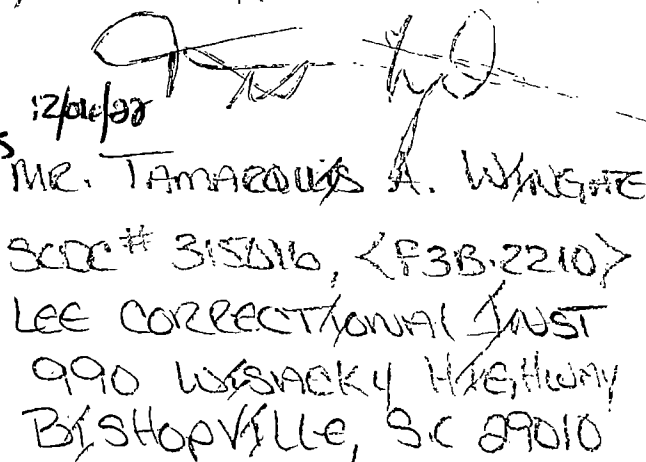 12/06/22
MR. TAMARQUIS A. WINGATE
SCDC# 315016, <F3B.2210>
LEE CORRECTIONAL INST
990 WISACKY HIGHWAY
BISHOPVILLE, SC 29010